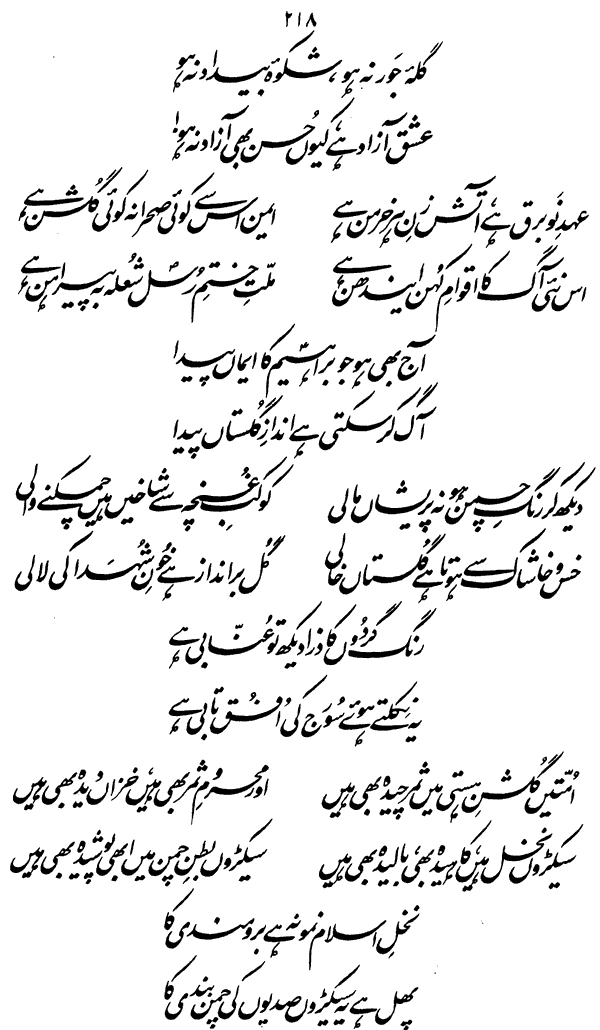 ۲۱۸
گلۂ جَور نہ ہو، شکوۂ بیداد نہ ہو
عشق آزاد ہے، کیوں حُسن بھی آزاد نہ ہو!
عہدِ نَو برق ہے، آتش زنِ ہر خرمن ہے ایمن اس سے کوئی صحرا نہ کوئی گُلشن ہے
اس نئی آگ کا اقوامِ کُہن ایندھن ہے ملّتِ ختمِ رُسل شُعلہ بہ پیراہن ہے
آج بھی ہو جو براہیمؑ کا ایماں پیدا
آگ کر سکتی ہے اندازِ گُلستاں پیدا
دیکھ کر رنگِ چمن ہو نہ پریشاں مالی کوکبِ غُنچہ سے شاخیں ہیں چمکنے والی
خس و خاشاک سے ہوتا ہے گُلستاں خالی گُل بر انداز ہے خُونِ شُہَدا کی لالی
رنگ گردُوں کا ذرا دیکھ تو عُنّابی ہے
یہ نِکلتے ہوئے سُورج کی اُفُق تابی ہے
اُمّتیں گُلشنِ ہستی میں ثمر چیدہ بھی ہیں اور محرومِ ثمر بھی ہیں، خزاں دیدہ بھی ہیں
سیکڑوں نخل ہیں، کاہیدہ بھی، بالیدہ بھی ہیں سیکڑوں بطنِ چمن میں ابھی پوشیدہ بھی ہیں
نخلِ اسلام نمونہ ہے برومندی کا
پھل ہے یہ سیکڑوں صدیوں کی چمن بندی کا